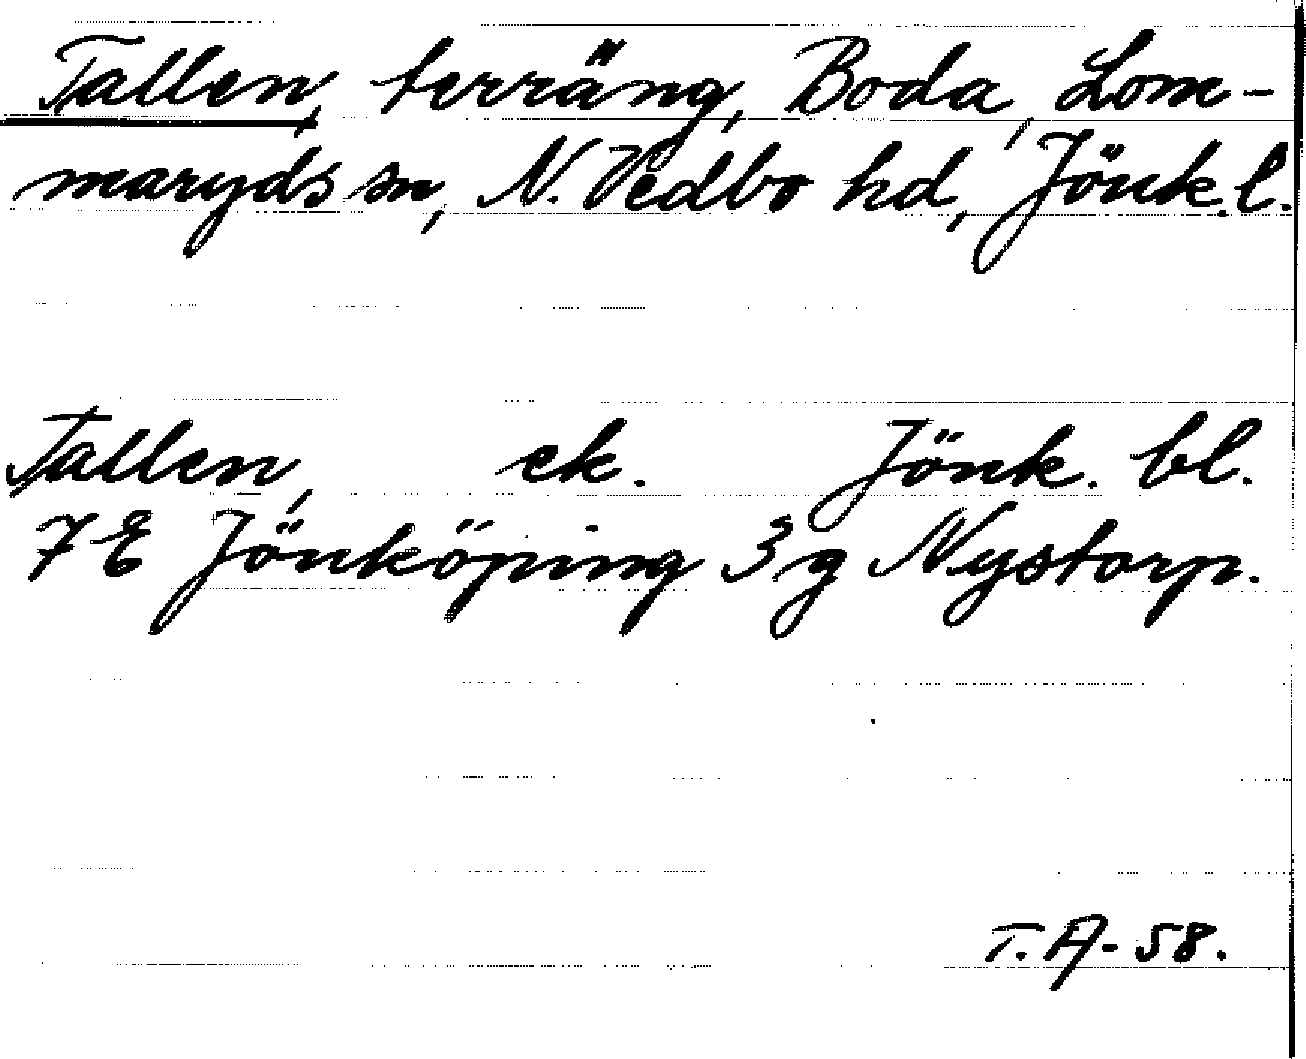 Tallen, terräng, Boda, Lom-
maryds sn, N. Vedbo hd, Jönk.l.
Tallen, ek. Jönk. bl.
7E Jönköping 3g Nystorp.
T.A-58.